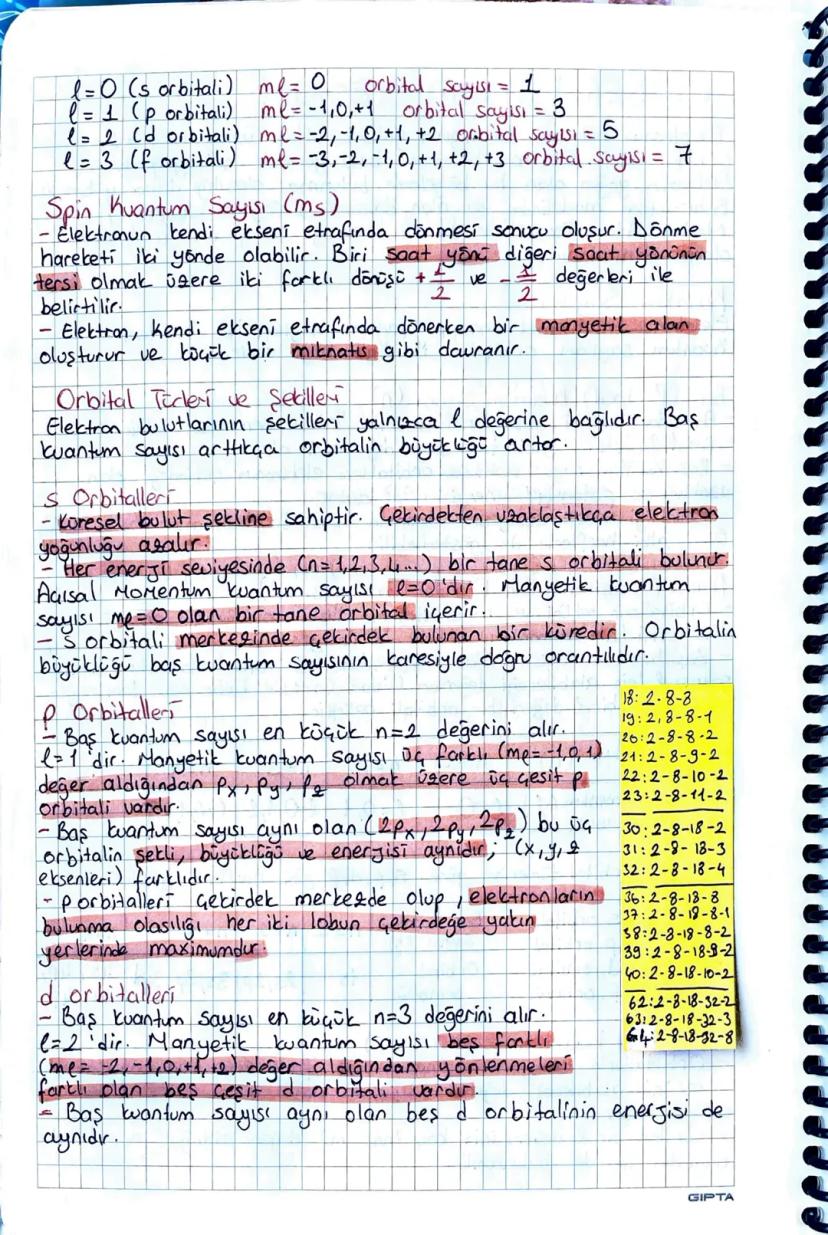 l=0 (s orbitali) ml= 0 orbital sayısı = 1
l= 1 (p orbitali) ml= -1,0,+1 orbital sayısı = 3
l= 2 (d orbitali) ml= -2,-1,0,+1,+2 orbital sayısı = 5
l= 3 (f orbitali) ml= -3,-2,-1,0,+1,+2,+3 orbital sayısı = 7
Spin Kuantum Sayısı (ms)
- Elektronun kendi ekseni etrafında dönmesi sonucu oluşur. Dönme
hareketi iki yönde olabilir. Biri saat yönü diğeri saat yönünün
tersi olmak üzere iki farklı dönüşü +1/2 ve -1/2 değerleri ile
belirtilir.
- Elektron, kendi ekseni etrafında dönerken bir manyetik alan
oluşturur ve küçük bir mıknatıs gibi davranır.
Orbital Türleri ve Şekilleri
Elektron bulutlarının şekilleri yalnızca l değerine bağlıdır. Baş
kuantum sayısı arttıkça orbitalin büyüklüğü artar.
s Orbitalleri
- Küresel bulut şekline sahiptir. Çekirdekten uzaklaştıkça elektron
yoğunluğu azalır.
- Her enerji seviyesinde (n=1,2,3,4...) bir tane s orbitali bulunur.
Açısal Momentum kuantum sayısı l=0'dır. Manyetik kuantum
sayısı ml=0 olan bir tane orbital içerir.
- s orbitali merkezinde çekirdek bulunan bir küredir. Orbitalin
büyüklüğü baş kuantum sayısının karesiyle doğru orantılıdır.
p Orbitalleri
- Baş kuantum sayısı en küçük n=2 değerini alır.
l=1'dir. Manyetik kuantum sayısı üç farklı (ml=-1,0,1)
değer aldığından px, py, pz olmak üzere üç çeşit p
orbitali vardır.
- Baş kuantum sayısı aynı olan (2px, 2py, 2pz) bu üç
orbitalin şekli, büyüklüğü ve enerjisi aynıdır, (x,y,z
eksenleri) farklıdır.
- p orbitalleri çekirdek merkezde olup, elektronların
bulunma olasılığı her iki lobun çekirdeğe yakın
yerlerinde maximumdur.
d orbitalleri
- Baş kuantum sayısı en küçük n=3 değerini alır.
l=2'dir. Manyetik kuantum sayısı beş farklı
(ml= -2,-1,0,+1,+2) değer aldığından yönlenmeleri
farklı olan beş çeşit d orbitali vardır.
- Baş kuantum sayısı aynı olan beş d orbitalinin enerjisi de
aynıdır.
18: 2-8-8
19: 2,8-8-1
20: 2-8-8-2
21: 2-8-9-2
22: 2-8-10-2
23: 2-8-11-2
30: 2-8-18-2
31: 2-8-18-3
32: 2-8-18-4
36: 2-8-18-8
37: 2-8-18-8-1
38: 2-8-18-8-2
39: 2-8-18-9-2
40: 2-8-18-10-2
62: 2-8-18-32-2
63: 2-8-18-32-3
64: 2-8-18-32-8
GIPTA